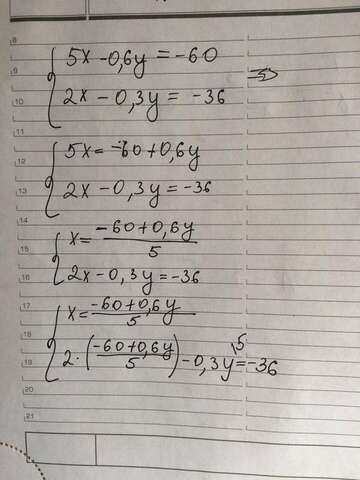 8
5x - 0,6y = -60
9
2x - 0,3y = -36
10
11
5x = -60 + 0,6y
12
2x - 0,3y = -36
13
14
x = -60 + 0,6y / 5
15
2x - 0,3y = -36
16
17
x = -60 + 0,6y / 5
18
2 · (-60 + 0,6y / 5) - 0,3y = -36
19
5
20
21